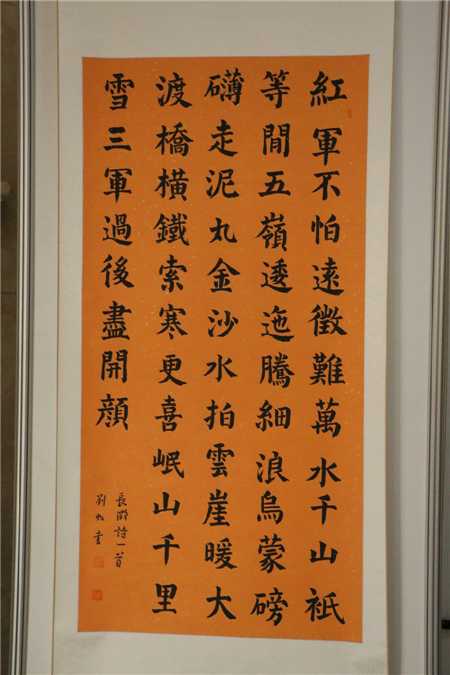 紅軍不怕遠徵難萬水千山祇
等間五嶺逶迤騰細浪烏蒙磅
礴走泥丸金沙水拍雲崖暖大
渡橋橫鐵索寒更喜岷山千里
雪三軍過後盡開顔
長徵詩一首
劉